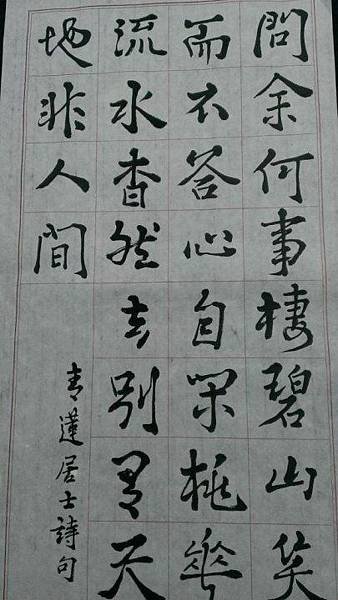 問余何事棲碧山笑
而不答心自閑桃花
流水杳然去別有天
地非人間
青蓮居士詩句